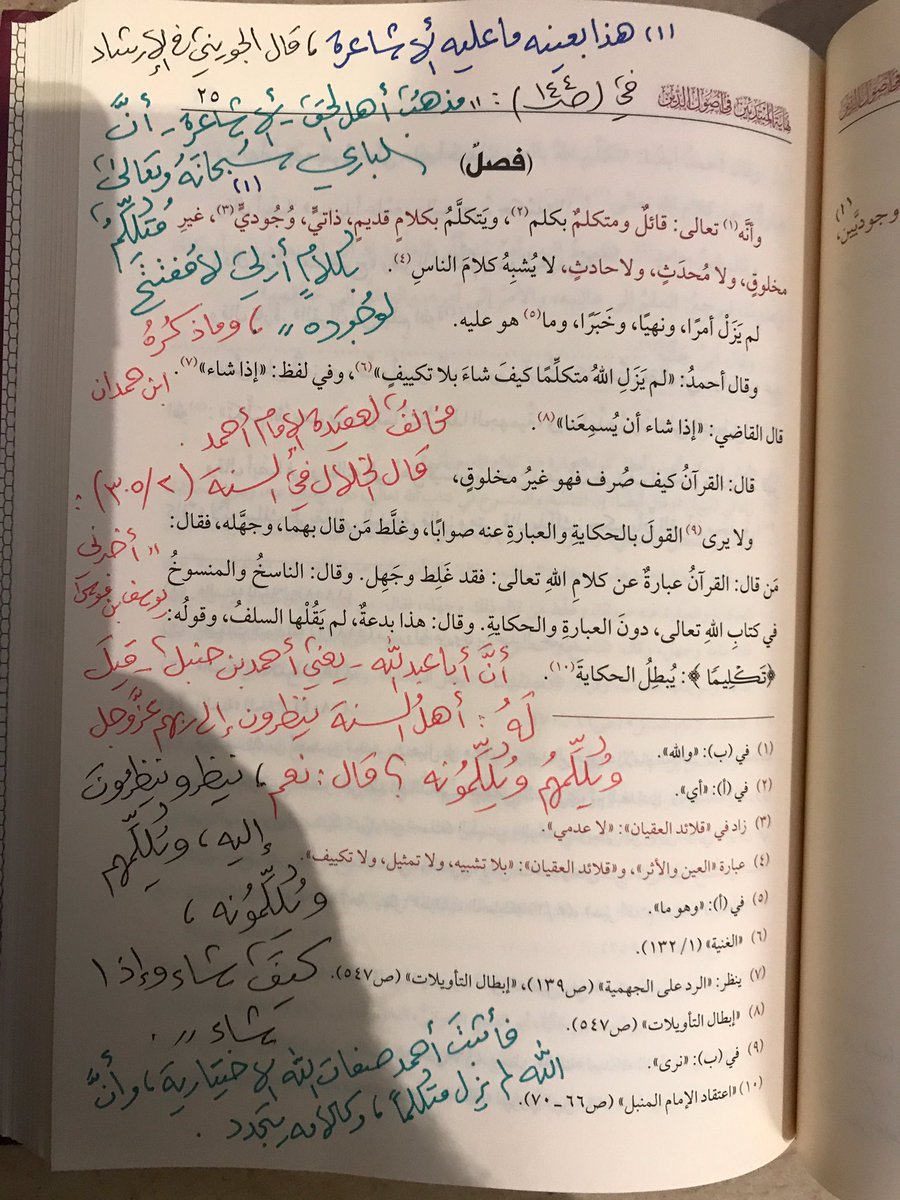 (١) هذا بعينه ما عليه الأشاعرة، قال الجويني في الإرشاد
في (صـ ١٤٤): "مذهب أهل الحق - الأشاعرة - أنَّ
الباري سبحانَهُ وتعالى
مُتكلِّمٌ
بكلامٍ أزليٍّ لا مُفتتح
لوُجُوده"، وما ذكرهُ
ابن حمدان
مخالفٌ لعقيدة الإمام أحمد.
قال الخلال في السنة (٣٠٥/٢):
"أخبرني
يوسف بن موسى
أنَّ أبا عبد الله - يعني أحمد بن حنبل - قيل
لهُ: أهلُ السنة ينظرون إلى ربهم عزَّوجل
ويُكلِّمهُم ويُكلِّمُونه؟ قال: نعم، ينظر وينظرون
إليه، ويُكلِّمهم
ويُكلِّمُونه،
كيفَ شاء وإذا
شاء".
فأثبتَ أحمد صفات الله الاختيارية، وأنَّ
الله لم يزل متكلماً، وكلامه يتجدد.
نهاية المبتدئين في أصول الدين
٢٥
(فصلٌ)
(١)
وأنَّه(١) تعالى: قائلٌ ومتكلمٌ بكلم(٢)، ويَتكلَّمُ بكلامٍ قديمٍ، ذاتيٍّ، وُجُوديٍّ(٣)، غيرِ
مخلوقٍ، ولا مُحدَثٍ، ولا حادثٍ، لا يُشبِهُ كلامَ الناسِ(٤).
لم يَزَلْ أمرًا، ونهيًا، وخَبَرًا، وما(٥) هو عليه.
وقال أحمدُ: «لم يَزَلِ اللهُ متكلِّمًا كيفَ شاءَ بلا تكييفٍ»(٦)، وفي لفظ: «إذا شاء»(٧).
قال القاضي: «إذا شاء أن يُسمِعَنا»(٨).
قال: القرآنُ كيف صُرف فهو غيرُ مخلوقٍ،
ولا يرى(٩) القولَ بالحكايةِ والعبارةِ عنه صوابًا، وغلَّط مَن قال بهما، وجهَّله، فقال:
مَن قال: القرآنُ عبارةٌ عن كلامِ اللهِ تعالى: فقد غَلِط وجَهِل. وقال: الناسخُ والمنسوخُ
في كتابِ اللهِ تعالى، دونَ العبارةِ والحكايةِ. وقال: هذا بدعةٌ، لم يَقُلْها السلفُ، وقولُه:
﴿تَكْلِيمًا﴾: يُبطِلُ الحكايةَ(١٠).
(١) في (ب): «والله».
(٢) في (أ): «أي».
(٣) زاد في «قلائد العقيان»: «لا عدمي».
(٤) عبارة «العين والأثر»، و«قلائد العقيان»: «بلا تشبيه، ولا تمثيل، ولا تكييف».
(٥) في (أ): «وهو ما».
(٦) «الغنية» (١/ ١٣٢).
(٧) ينظر: «الرد على الجهمية» (ص١٣٩)، «إبطال التأويلات» (ص٥٤٧).
(٨) «إبطال التأويلات» (ص٥٤٧).
(٩) في (ب): «نرى».
(١٠) «اعتقاد الإمام المنبل» (ص٦٦ - ٧٠).
(١)
وجوديَّين،